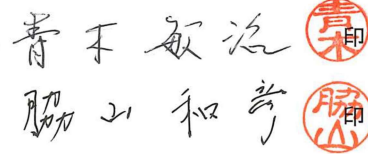 青木 敏治 青木 印
脇山 和彦 脇山 印